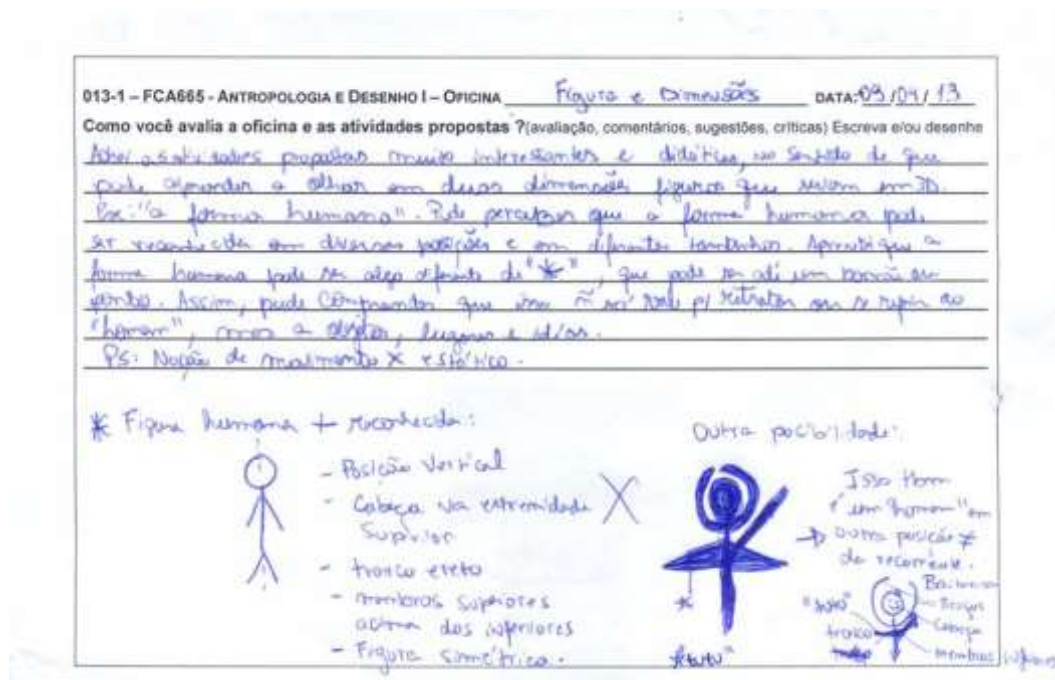 013-1 – FCA665 - ANTROPOLOGIA E DESENHO I – OFICINA Figura e Dimensões DATA: 09/04/13
Como você avalia a oficina e as atividades propostas ?(avaliação, comentários, sugestões, críticas) Escreva e/ou desenhe
Achei as atividades propostas muito interessantes e didáticas, no sentido de que
pude aprender a olhar em duas dimensões figuras que seriam em 3D.
Ex: "a forma humana". Pude perceber que a forma humana pode
ser reconhecida em diversas posições e em diferentes tamanhos. Aprendi que a
forma humana pode ser algo diferente de "*", que pode ser até um borrão ou
ponto. Assim, pude compreender que isso ñ só vale p/ retratar ou se referir ao
"homem", como a objetos, lugares e idéias.
PS: Noção de movimento X estático.
* Figura humana + reconhecida:
- Posição vertical
- Cabeça na extremidade
superior
- tronco ereto
- membros superiores
acima dos inferiores
- Figura simétrica.
X
Outra pocibilidade:
Isso tbm
é "um homem" em
outra posição ≠
da recorrente.
*
"tutu"
Bailarina
"tutu"
Braços
Cabeça
tronco
membros inferiores